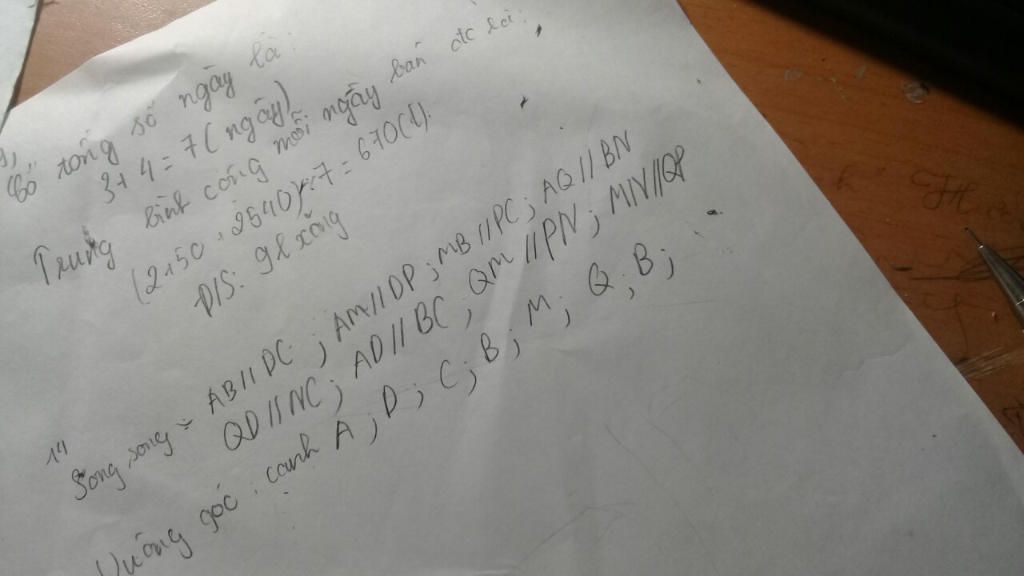 Có tổng số ngày là:
3 + 4 = 7 (ngày)
Trung bình cộng mỗi ngày bán đc là:
(2150 + 2540) : 7 = 670(l).
Đ/S: 9l xăng
14
Song song : AB // DC ; AM // DP ; MB // PC ; AQ // BN
QD // NC ; AD // BC ; QM // PN ; MN // QP
Vuông góc : cạnh A ; D ; C ; B ; M ; Q ; B ;